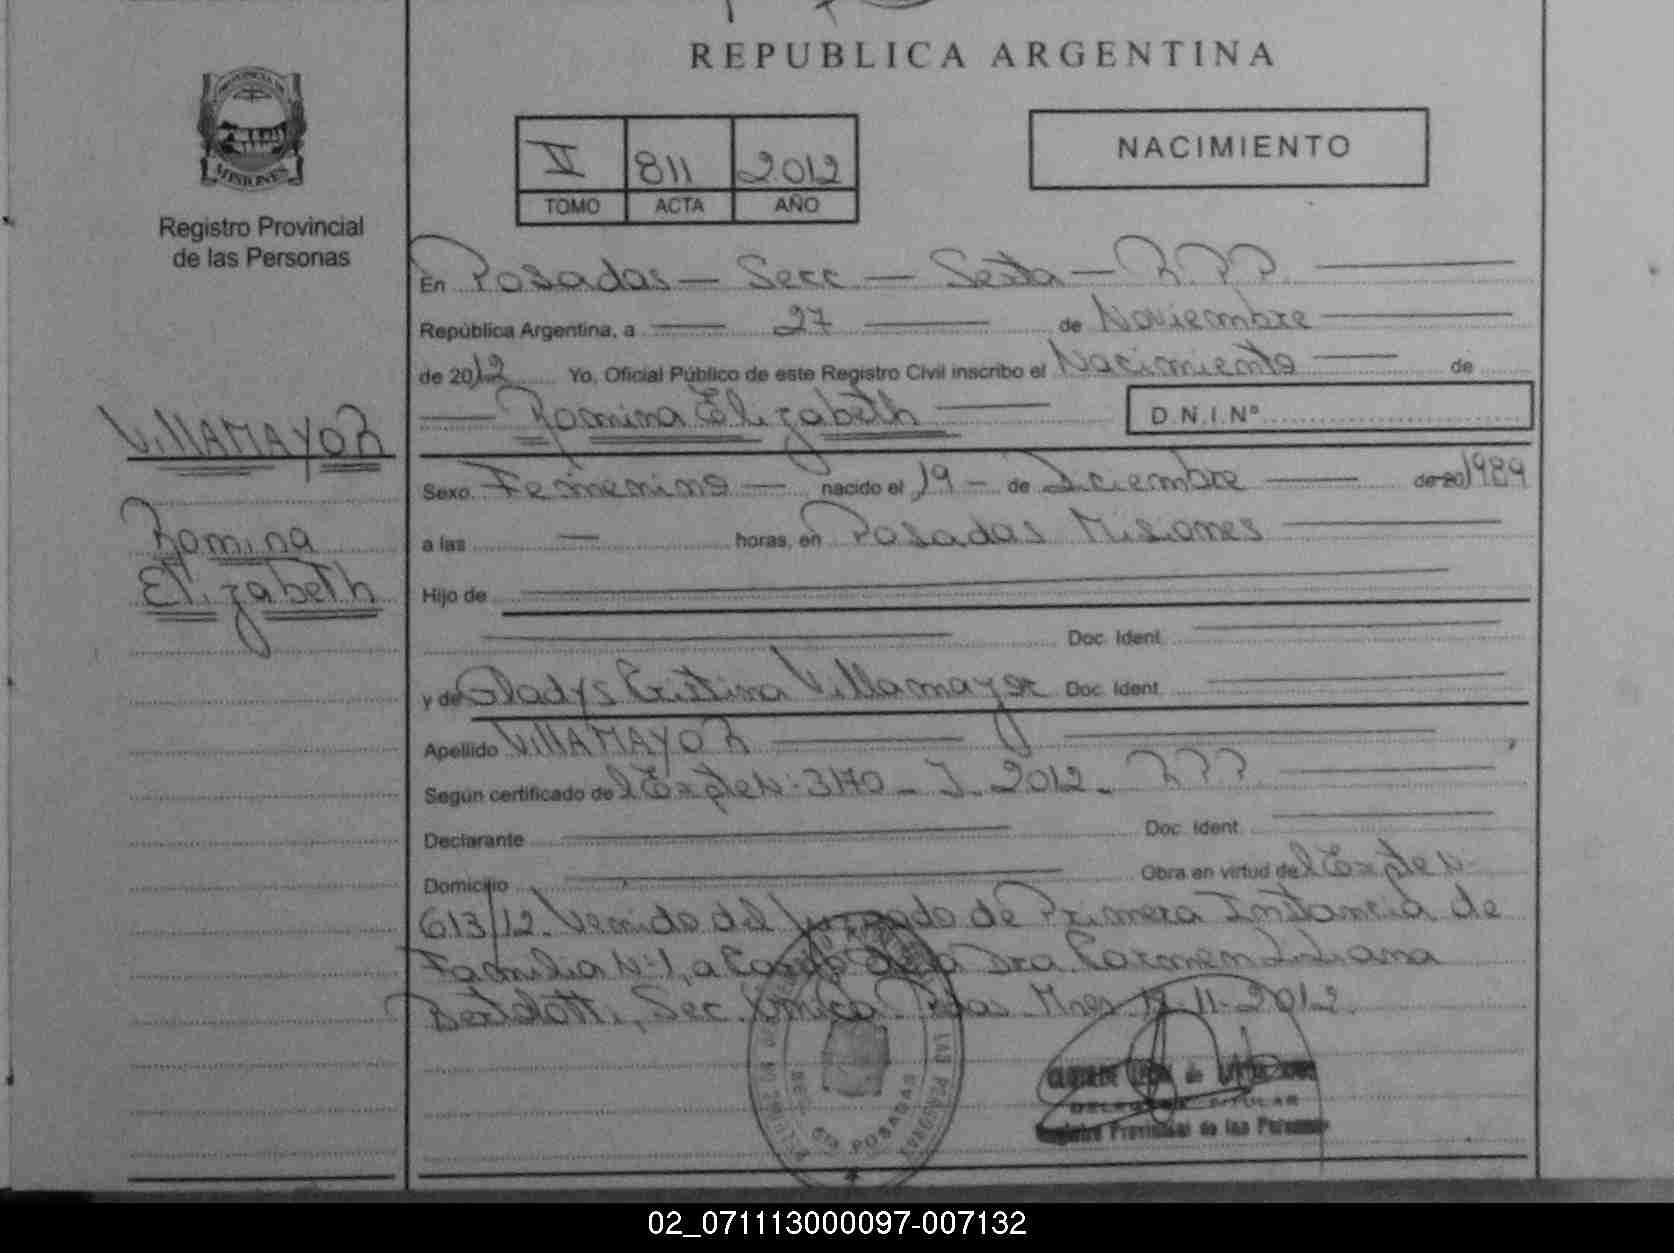 REPUBLICA ARGENTINA
MISIONES
Registro Provincial
de las Personas
V 811 2012
TOMO ACTA AÑO
NACIMIENTO
En Posadas — Secc — Sexta — R.P.P.
República Argentina, a — 27 — de Noviembre
de 2012 Yo, Oficial Público de este Registro Civil inscribo el Nacimiento — de
— Romina Elizabeth — D.N.I.Nº
VillAMAYOR
Romina
Elizabeth
Sexo Femenino — nacido el 19 — de Diciembre — de 20 1989
a las — horas, en Posadas Misiones
Hijo de
Doc. Ident.
y de Gladys Cristina Villamayor Doc. Ident.
Apellido VillAMAYOR
Según certificado del Expte N: 3170 - J - 2012 - R.P.P.
Declarante Doc. Ident.
Domicilio Obra en virtud del Expte N:
613/12. Venido del Juzgado de Primera Instancia de
Familia N:1, a Cargo de la Dra. Carmen Liliana
Bertolotti, Sec. Unica Pdas. Mnes 11-2012.
POSADAS
LAS PERSONAS
TITULAR
Registro Provincial de las Personas
02_071113000097-007132